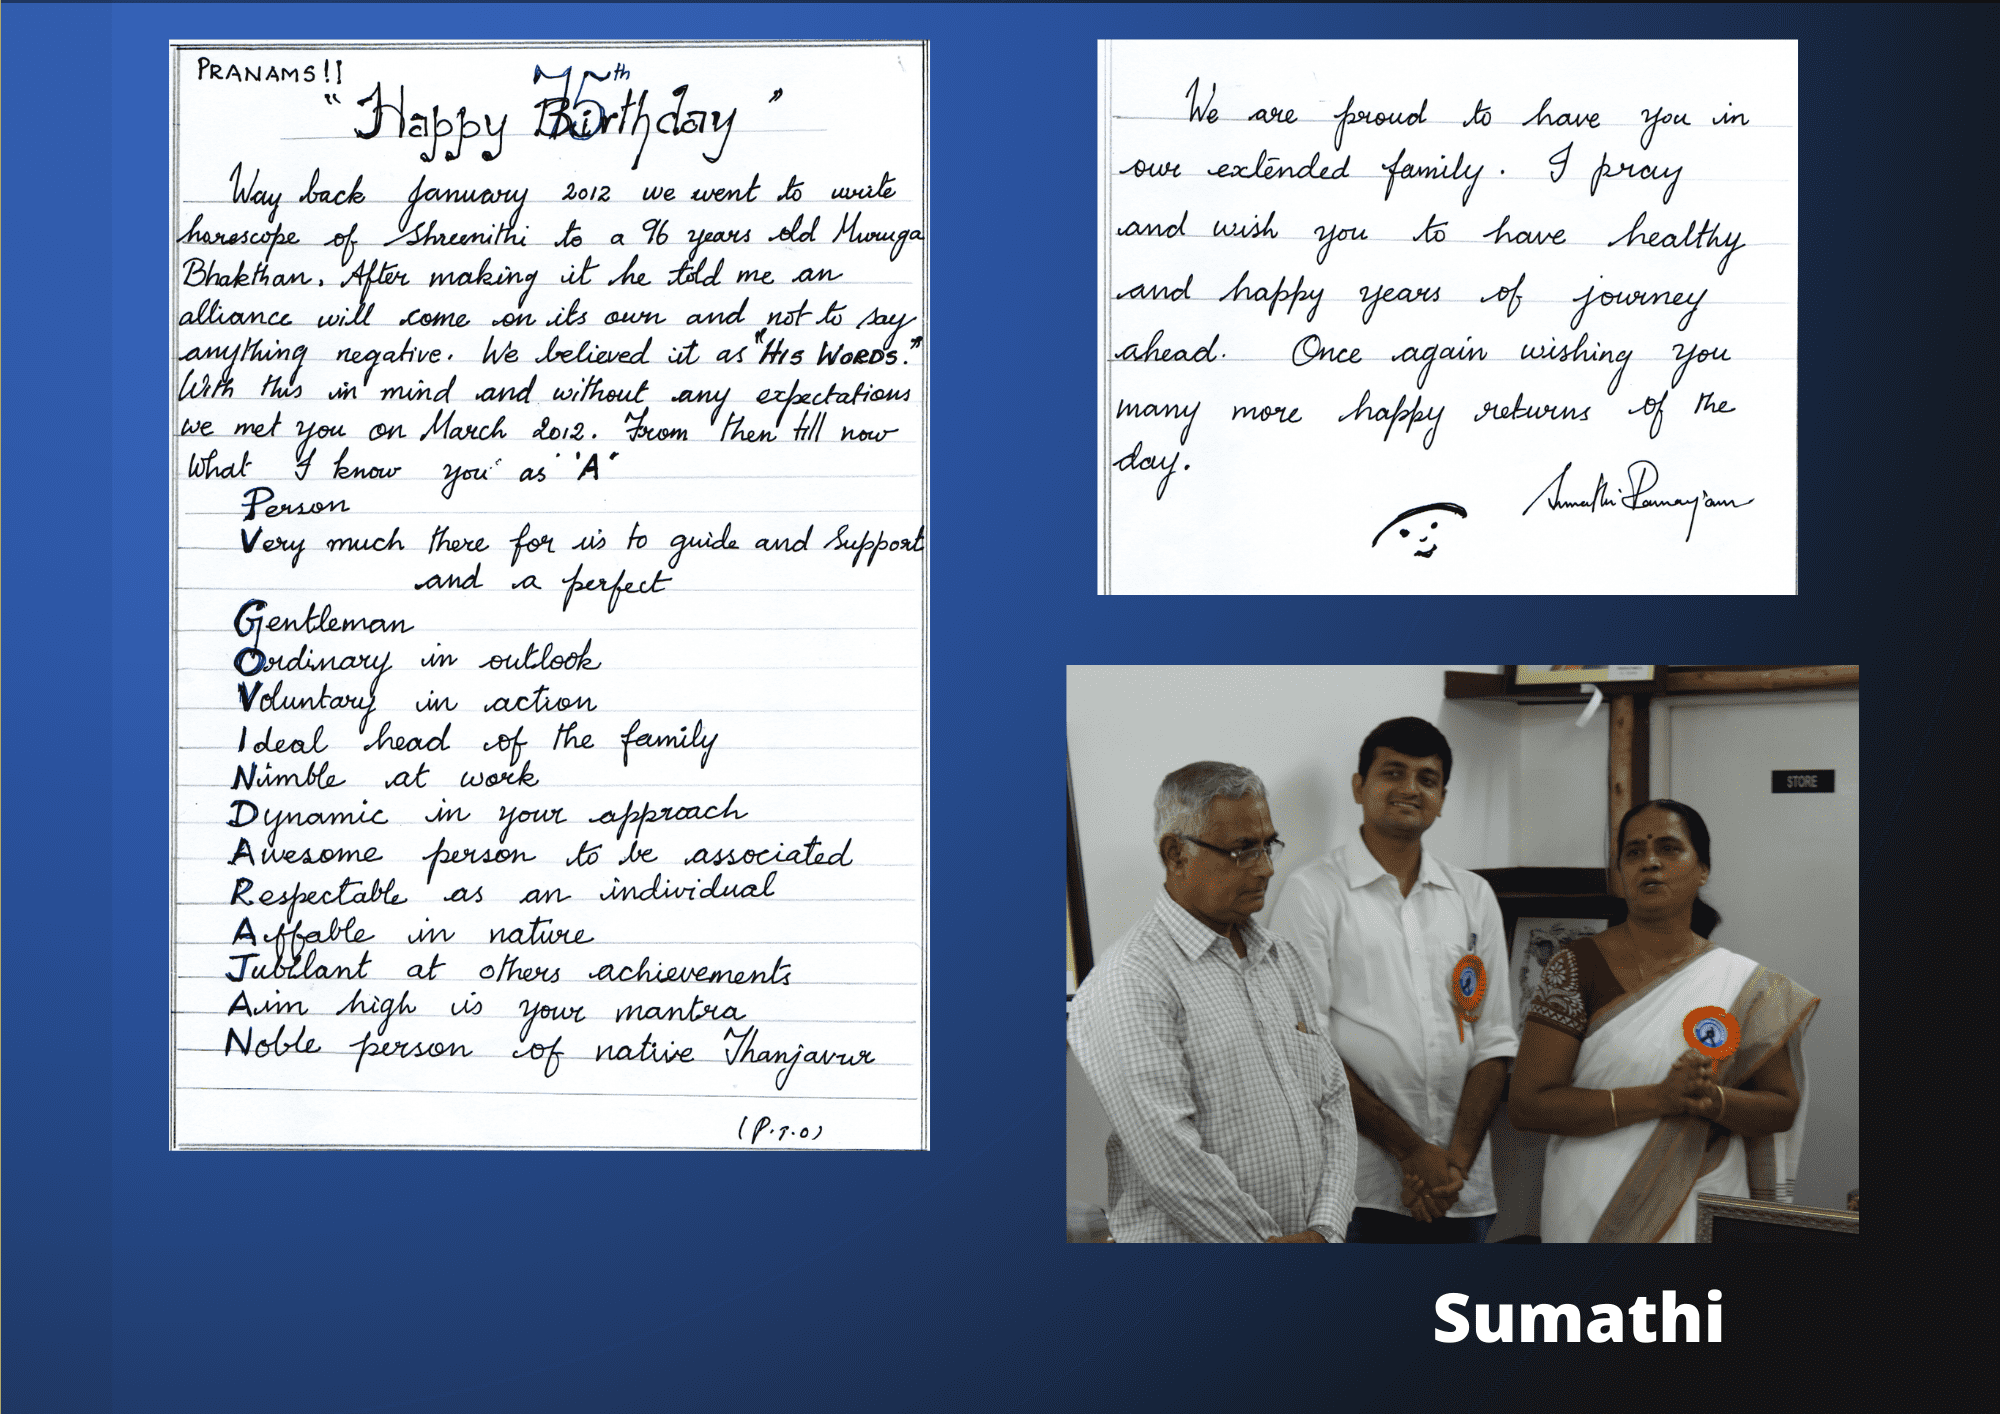 PRANAMS!!
75th
"Happy Birthday"
Way back January 2012 we went to write
horescope of Shreenithi to a 96 years old Muruga
Bhakthan. After making it he told me an
alliance will come on its own and not to say
anything negative. We believed it as "HIS WORDS."
With this in mind and without any expectations
we met you on March 2012. From then till now
What I know you as 'A'
Person
Very much there for us to guide and Support
and a perfect
Gentleman
Ordinary in outlook
Voluntary in action
Ideal head of the family
Nimble at work
Dynamic in your approach
Awesome person to be associated
Respectable as an individual
Affable in nature
Jubilant at others achievements
Aim high is your mantra
Noble person of native Thanjavur
(P.T.O)
We are proud to have you in
our extended family. I pray
and wish you to have healthy
and happy years of journey
ahead. Once again wishing you
many more happy returns of the
day.
Sumathi Ramanujam
STORE
Sumathi